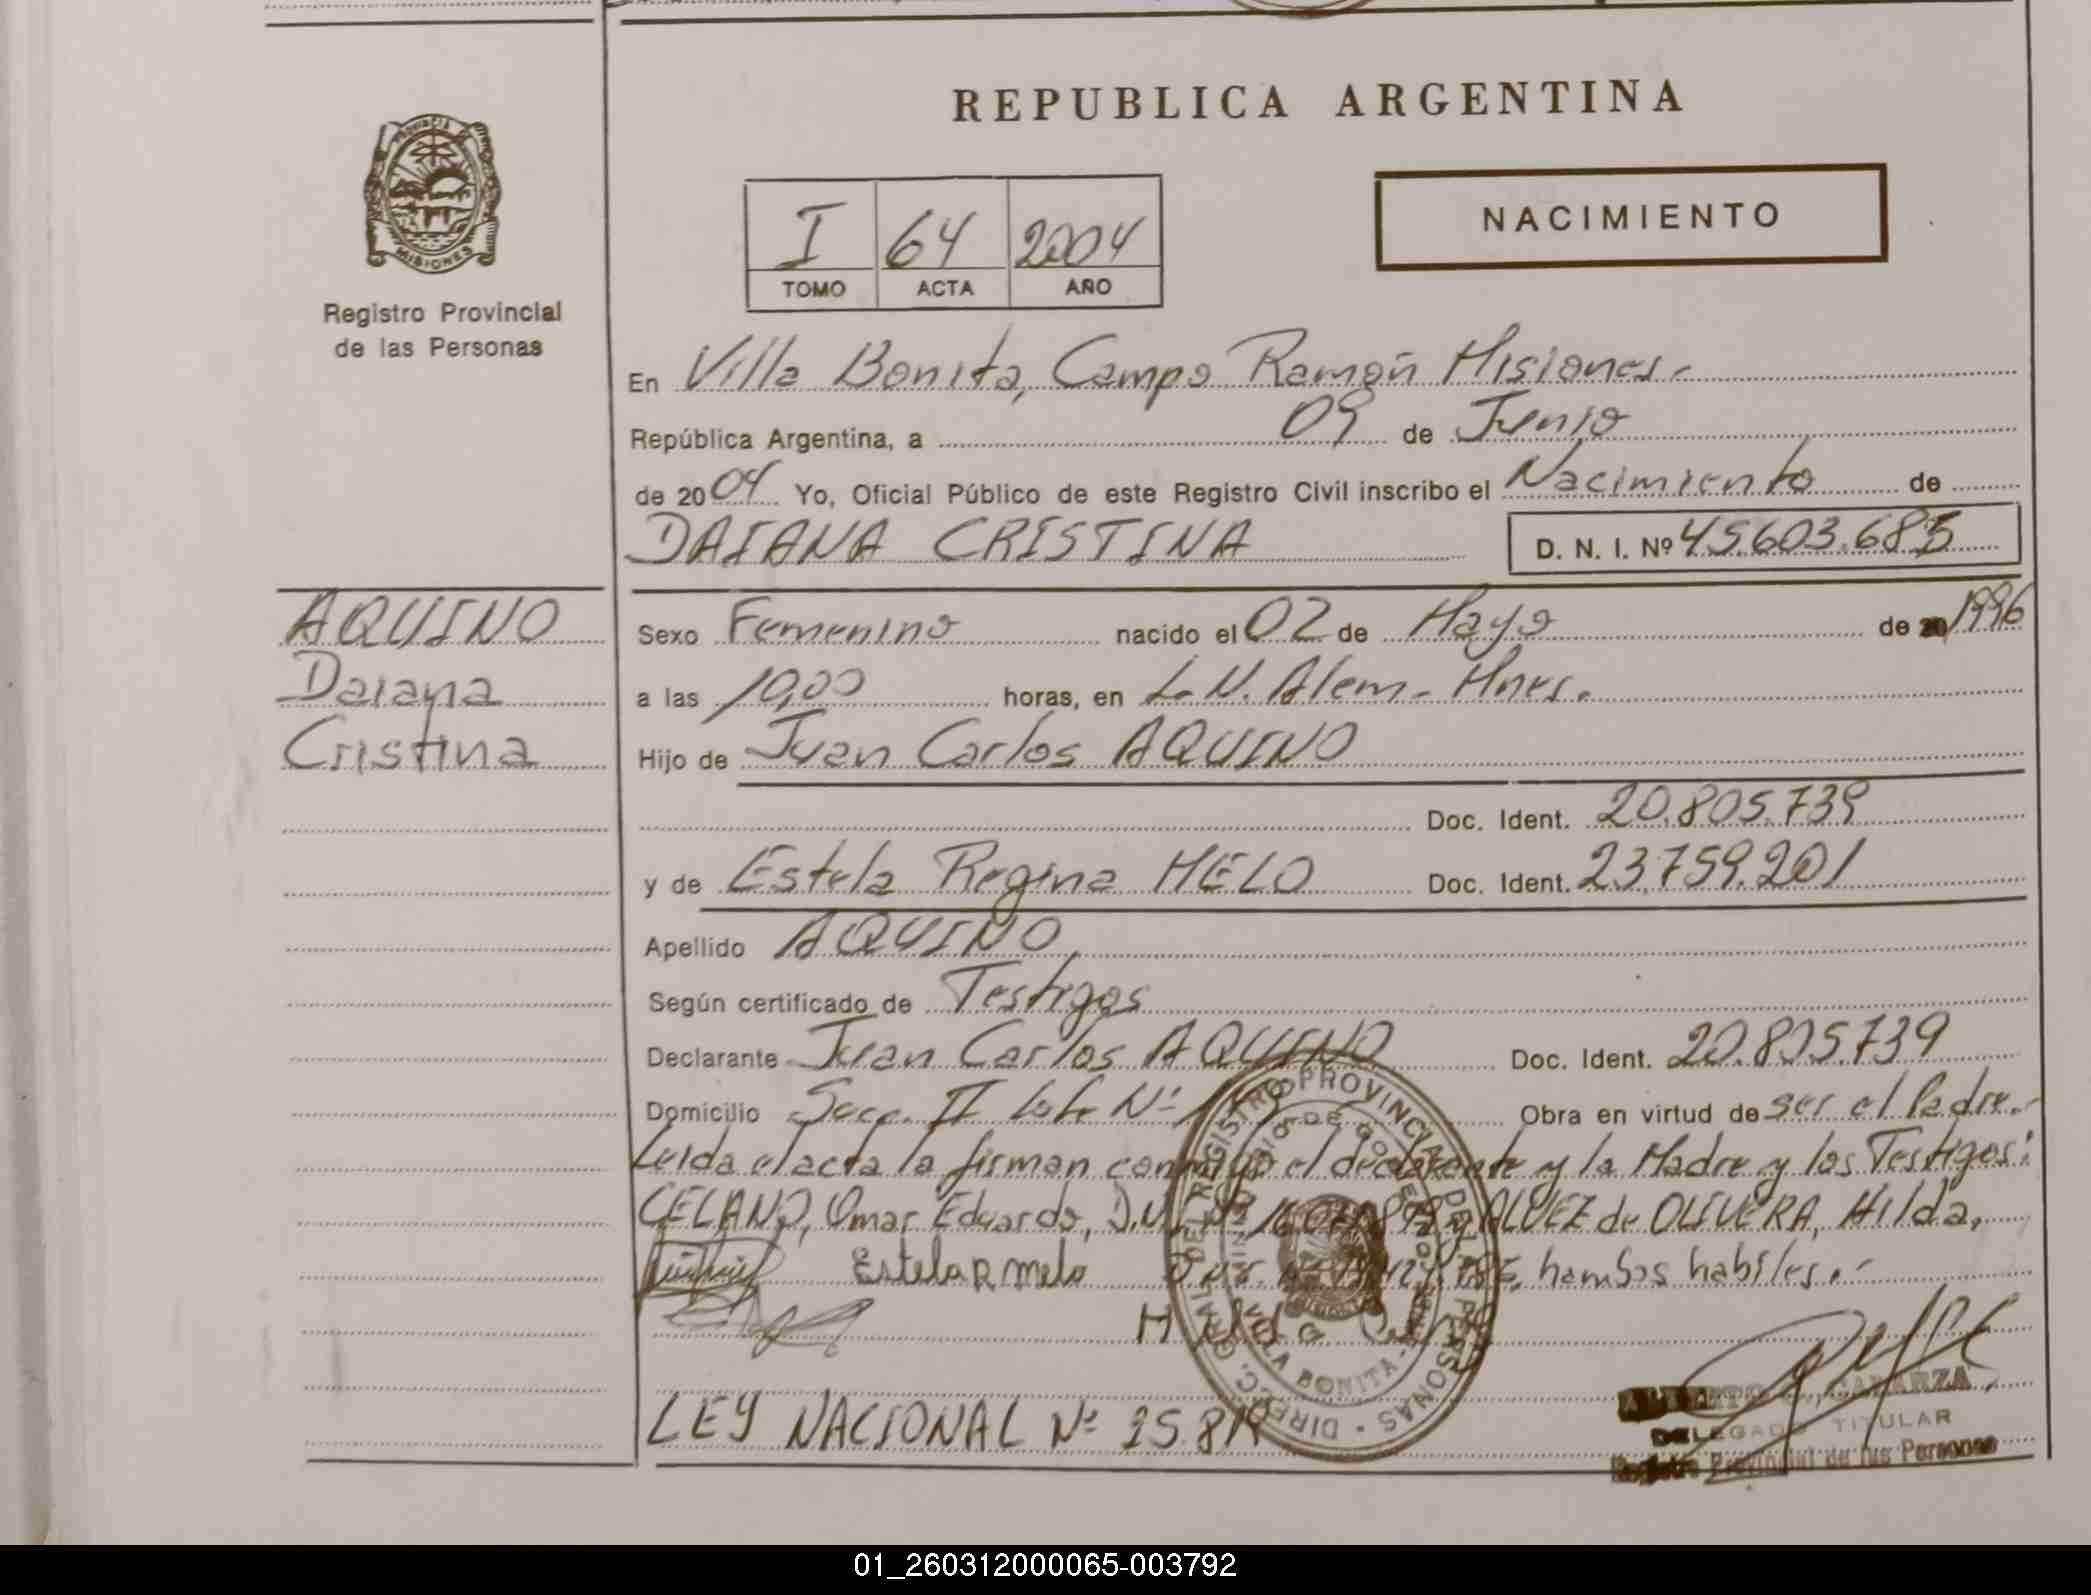 REPUBLICA ARGENTINA
PROVINCIA DE MISIONES
Registro Provincial
de las Personas
I 64 2004
TOMO ACTA AÑO
NACIMIENTO
En Villa Bonita, Campo Ramón Misiones.-
República Argentina, a 09 de Junio
de 2004 Yo, Oficial Público de este Registro Civil inscribo el Nacimiento de
DAIANA CRISTINA D. N. I. Nº 45.603.683
AQUINO
Daiana
Cristina
Sexo Femenino nacido el 02 de Mayo de 1996
a las 10,00 horas, en L.N. Alem.- Mnes.
Hijo de Juan Carlos AQUINO
Doc. Ident. 20.805.739
y de Estela Regina MELO Doc. Ident. 23.759.201
Apellido AQUINO
Según certificado de Testigos
Declarante Juan Carlos AQUINO Doc. Ident. 20.805.739
Domicilio Secc. II Lote Nº Obra en virtud de ser el Padre.-
Leida el acta la firman conmigo el declarante y la Madre y los Testigos:
CELANO, Omar Eduardo, D.N.I. Nº y ALVEZ de OLIVERA, Hilda,
Estela R melo hambos habiles.-
LEY NACIONAL Nº 25.819
DIREC. GRAL. DEL REGISTRO PROVINCIAL DE PERSONAS
VILLA BONITA
DELEGADO TITULAR
Registro Provincial de las Personas
01_260312000065-003792